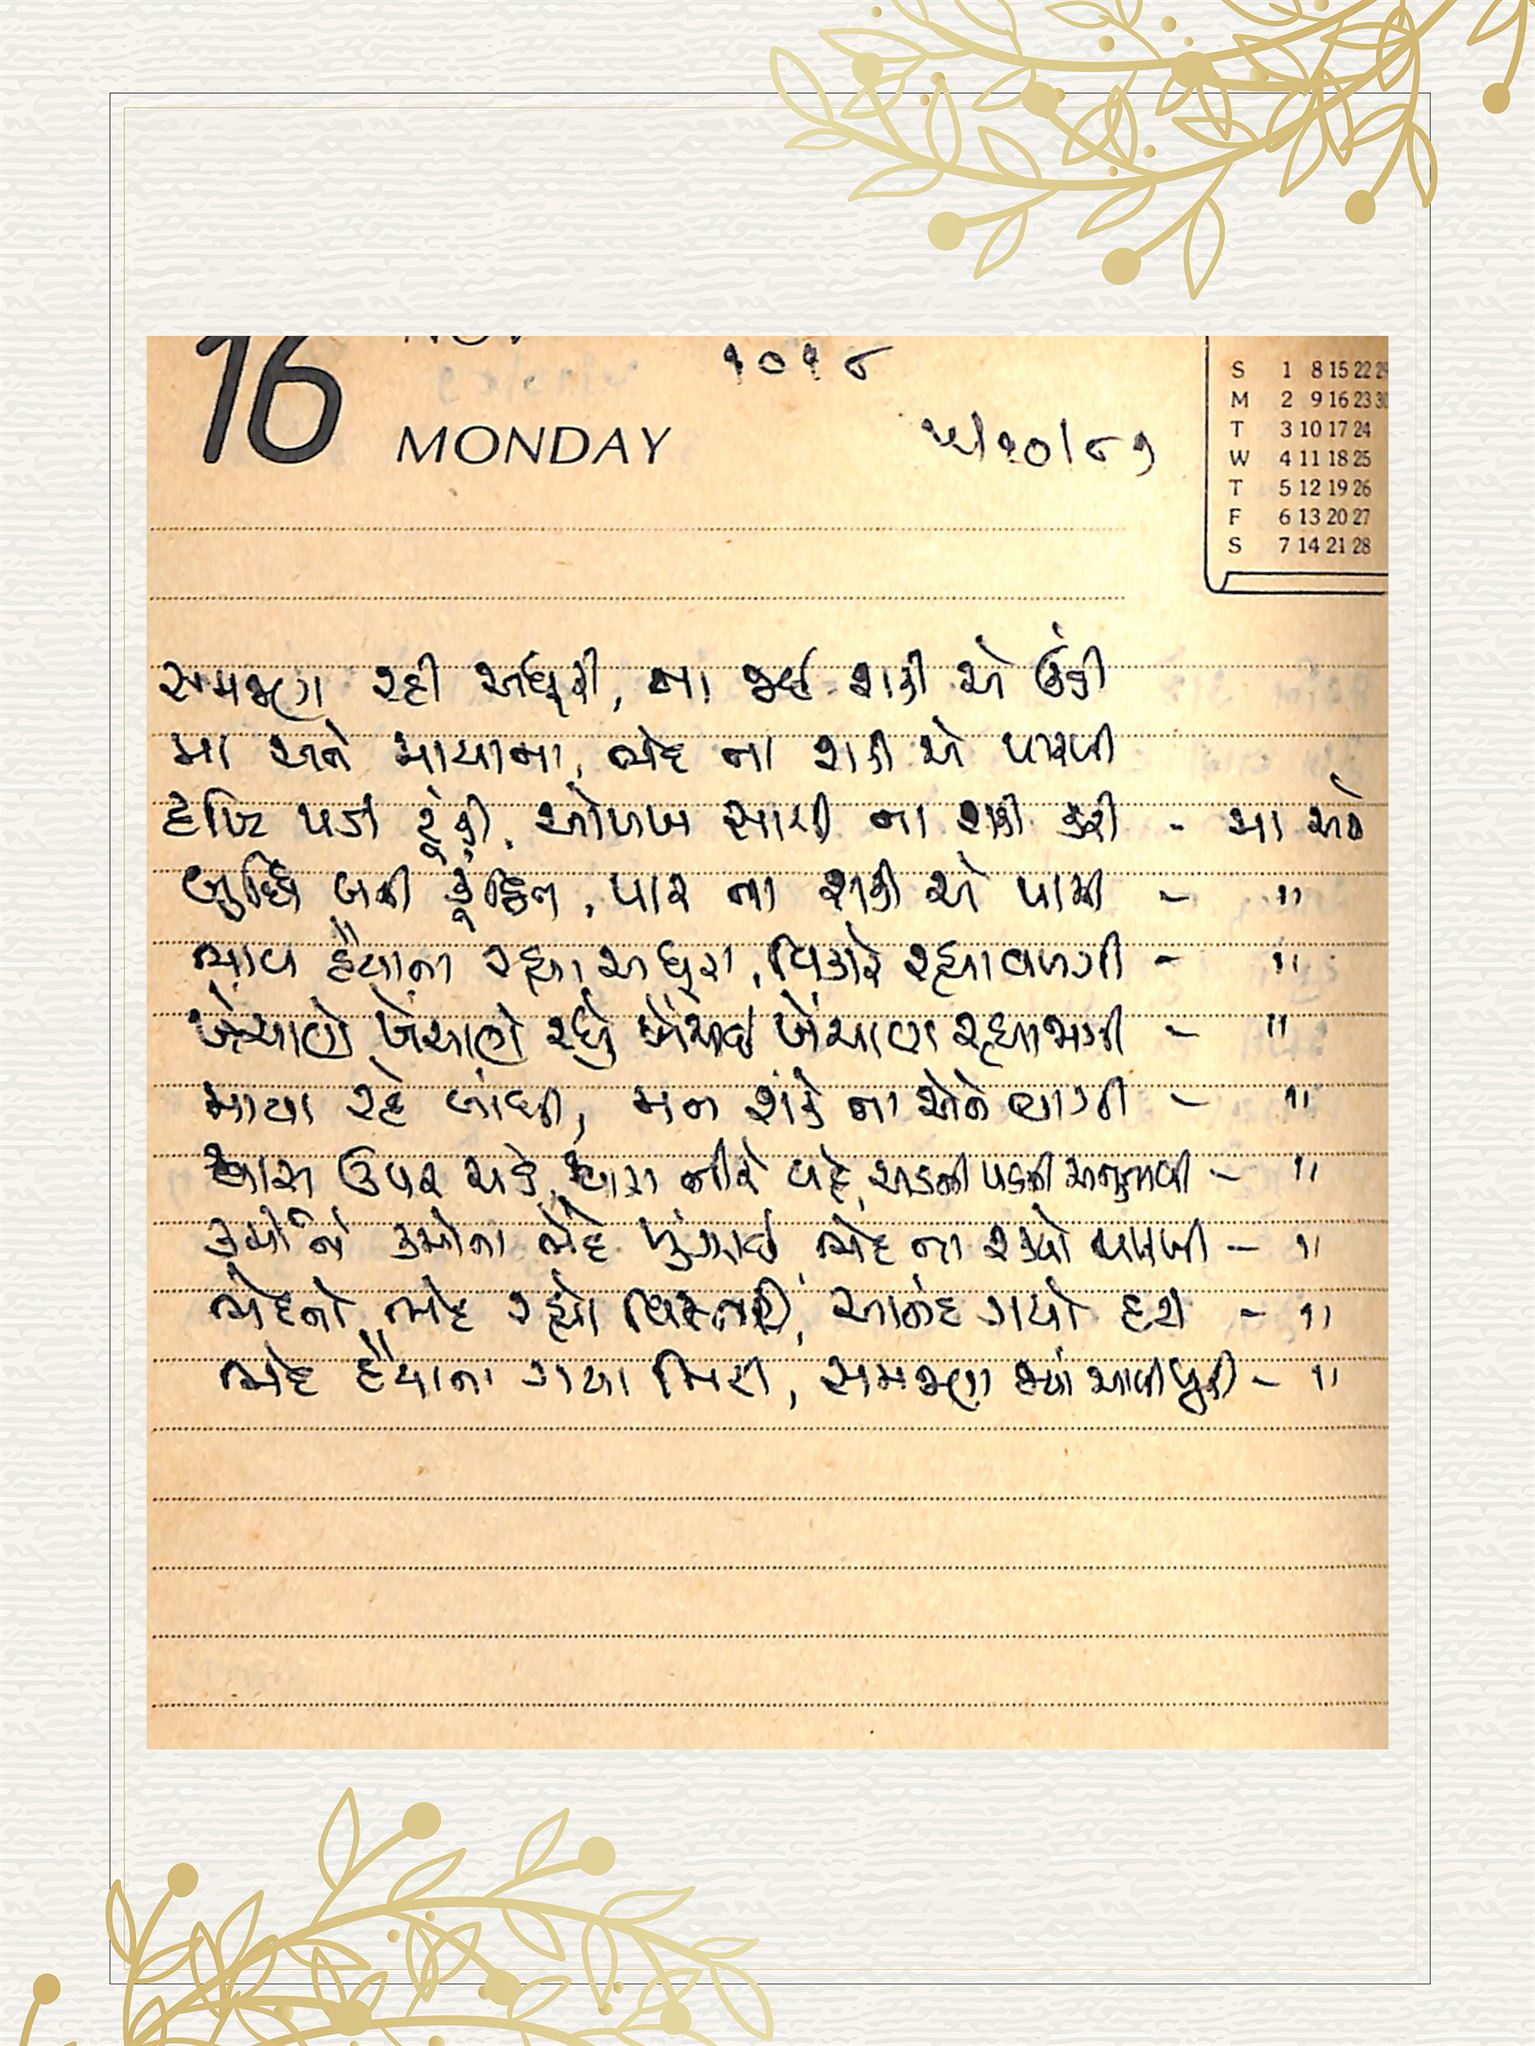 16 NOV ૧૦૧૮
MONDAY ૨૯/૧૦/૮૭
S 1 8 15 22 29
M 2 9 16 23 30
T 3 10 17 24
W 4 11 18 25
T 5 12 19 26
F 6 13 20 27
S 7 14 21 28
સમજણ રહી અધૂરી, ના જઈ શકી એ ઉંડી
મા અને માયાના, ભેદ ના શકી એ પારખી
દૃષ્ટિ પડી ટૂંકી, ઓળખ સાચી ના શકી કરી - મા અને
બુદ્ધિ બની કુંઠિત, પાર ના શકી એ પામી - "
ભાવ હૈયાના રહ્યા અધૂરા, વિકારે રહ્યા વળગી - "
ખેંચાણે ખેંચાણે રહ્યું ખેંચાઈ ખેંચાણ રહ્યા જાગી - "
માયા રહે બાંધી, મન શકે ના એને ત્યાગી - "
શ્વાસ ઉપર ચડે, શ્વાસ નીચે વહે, ચડતી પડતી અનુભવી - "
કર્મોને કર્મોના ભેદે મુંઝાઈ ભેદ ના શક્યો પારખી - "
ભેદનો ભેદ રહ્યો વિસ્તરી, આનંદ ગયો હરી - "
ભેદ હૈયાના ગયા મિટી, સમજણ જ્યાં આવી પૂરી - "